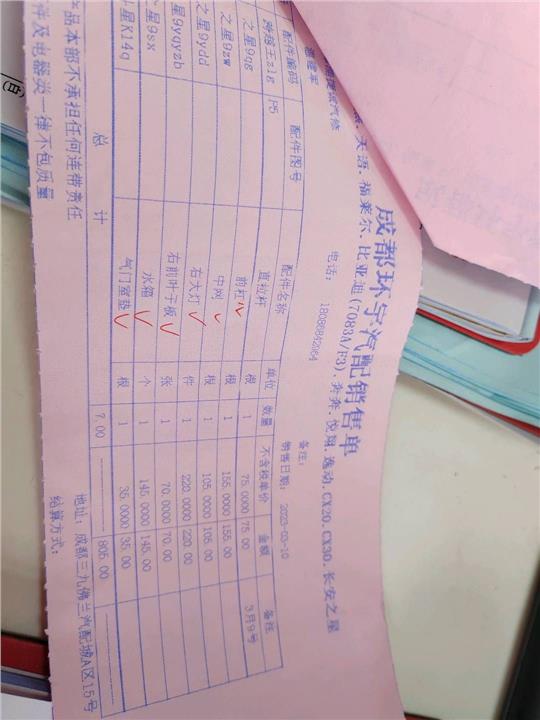 成都环宇汽配销售单
天语.福莱尔.比亚迪(7083A/F3).奔奔.悦翔.逸动.CX20.CX30.长安之星
电话: 18080842064
备注:
销售日期: 2023-03-10
配件编码 配件图号 配件名称 单位 数量 不含税单价 金额 备注
跨越王z1g P5 直拉杆 根 1 75.0000 75.00 3月9号
之星9qg 前杠 根 1 155.0000 155.00
之星9zw 中网 根 1 105.0000 105.00
之星9ydd 右大灯 件 1 220.0000 220.00
星9yqyzb 右前叶子板 张 1 70.0000 70.00
星9sx 水箱 个 1 145.0000 145.00
星K14q 气门室垫 根 1 35.0000 35.00
总 计 7.00 805.00
产品本部不承担任何连带责任 地址: 成都三九佛兰汽配城A区15号
件及电器类一律不包质量 结算方式: